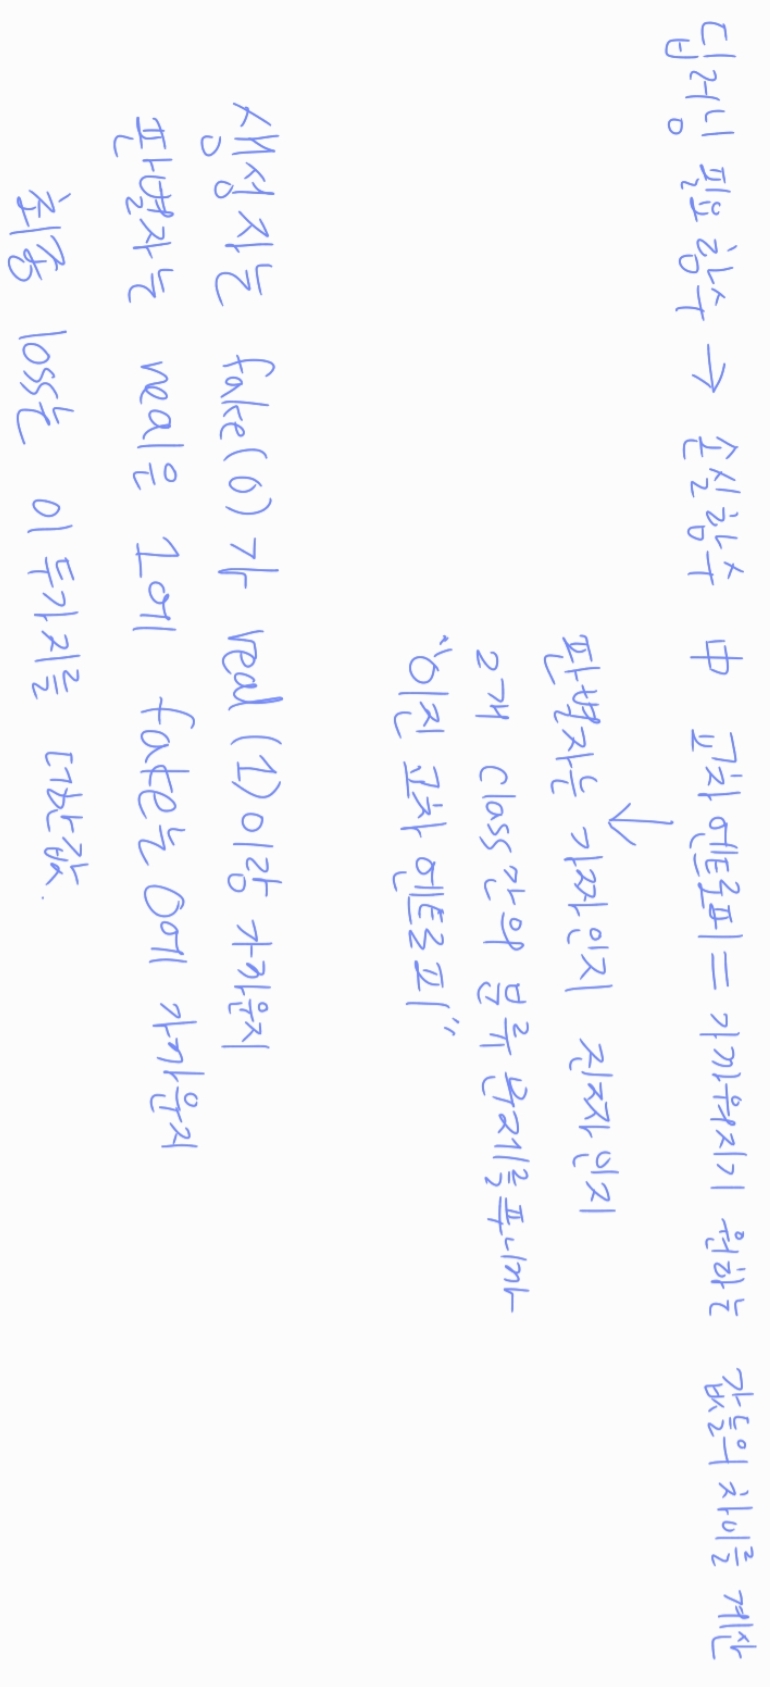 딥러닝 필요함수 → 손실함수 中 교차 엔트로피 = 가까워지기 원하는 값들의 차이를 계산
↓
판별자는 가짜인지 진짜인지
2개 class간의 분류 문제를 푸니까
"이진 교차 엔트로피"
생성자는 fake(0)가 real (1)이랑 가까운지
판별자는 real은 1에 fake는 0에 가까운지
최종 loss는 이 두가지를 더한값.